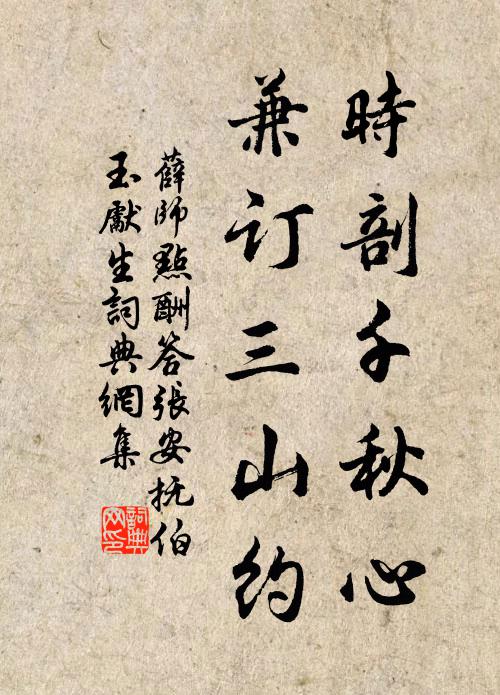 時剖千秋心
兼订三山约
薛師點酬答張安抚伯
玉獻生詞典網集
詞典网印